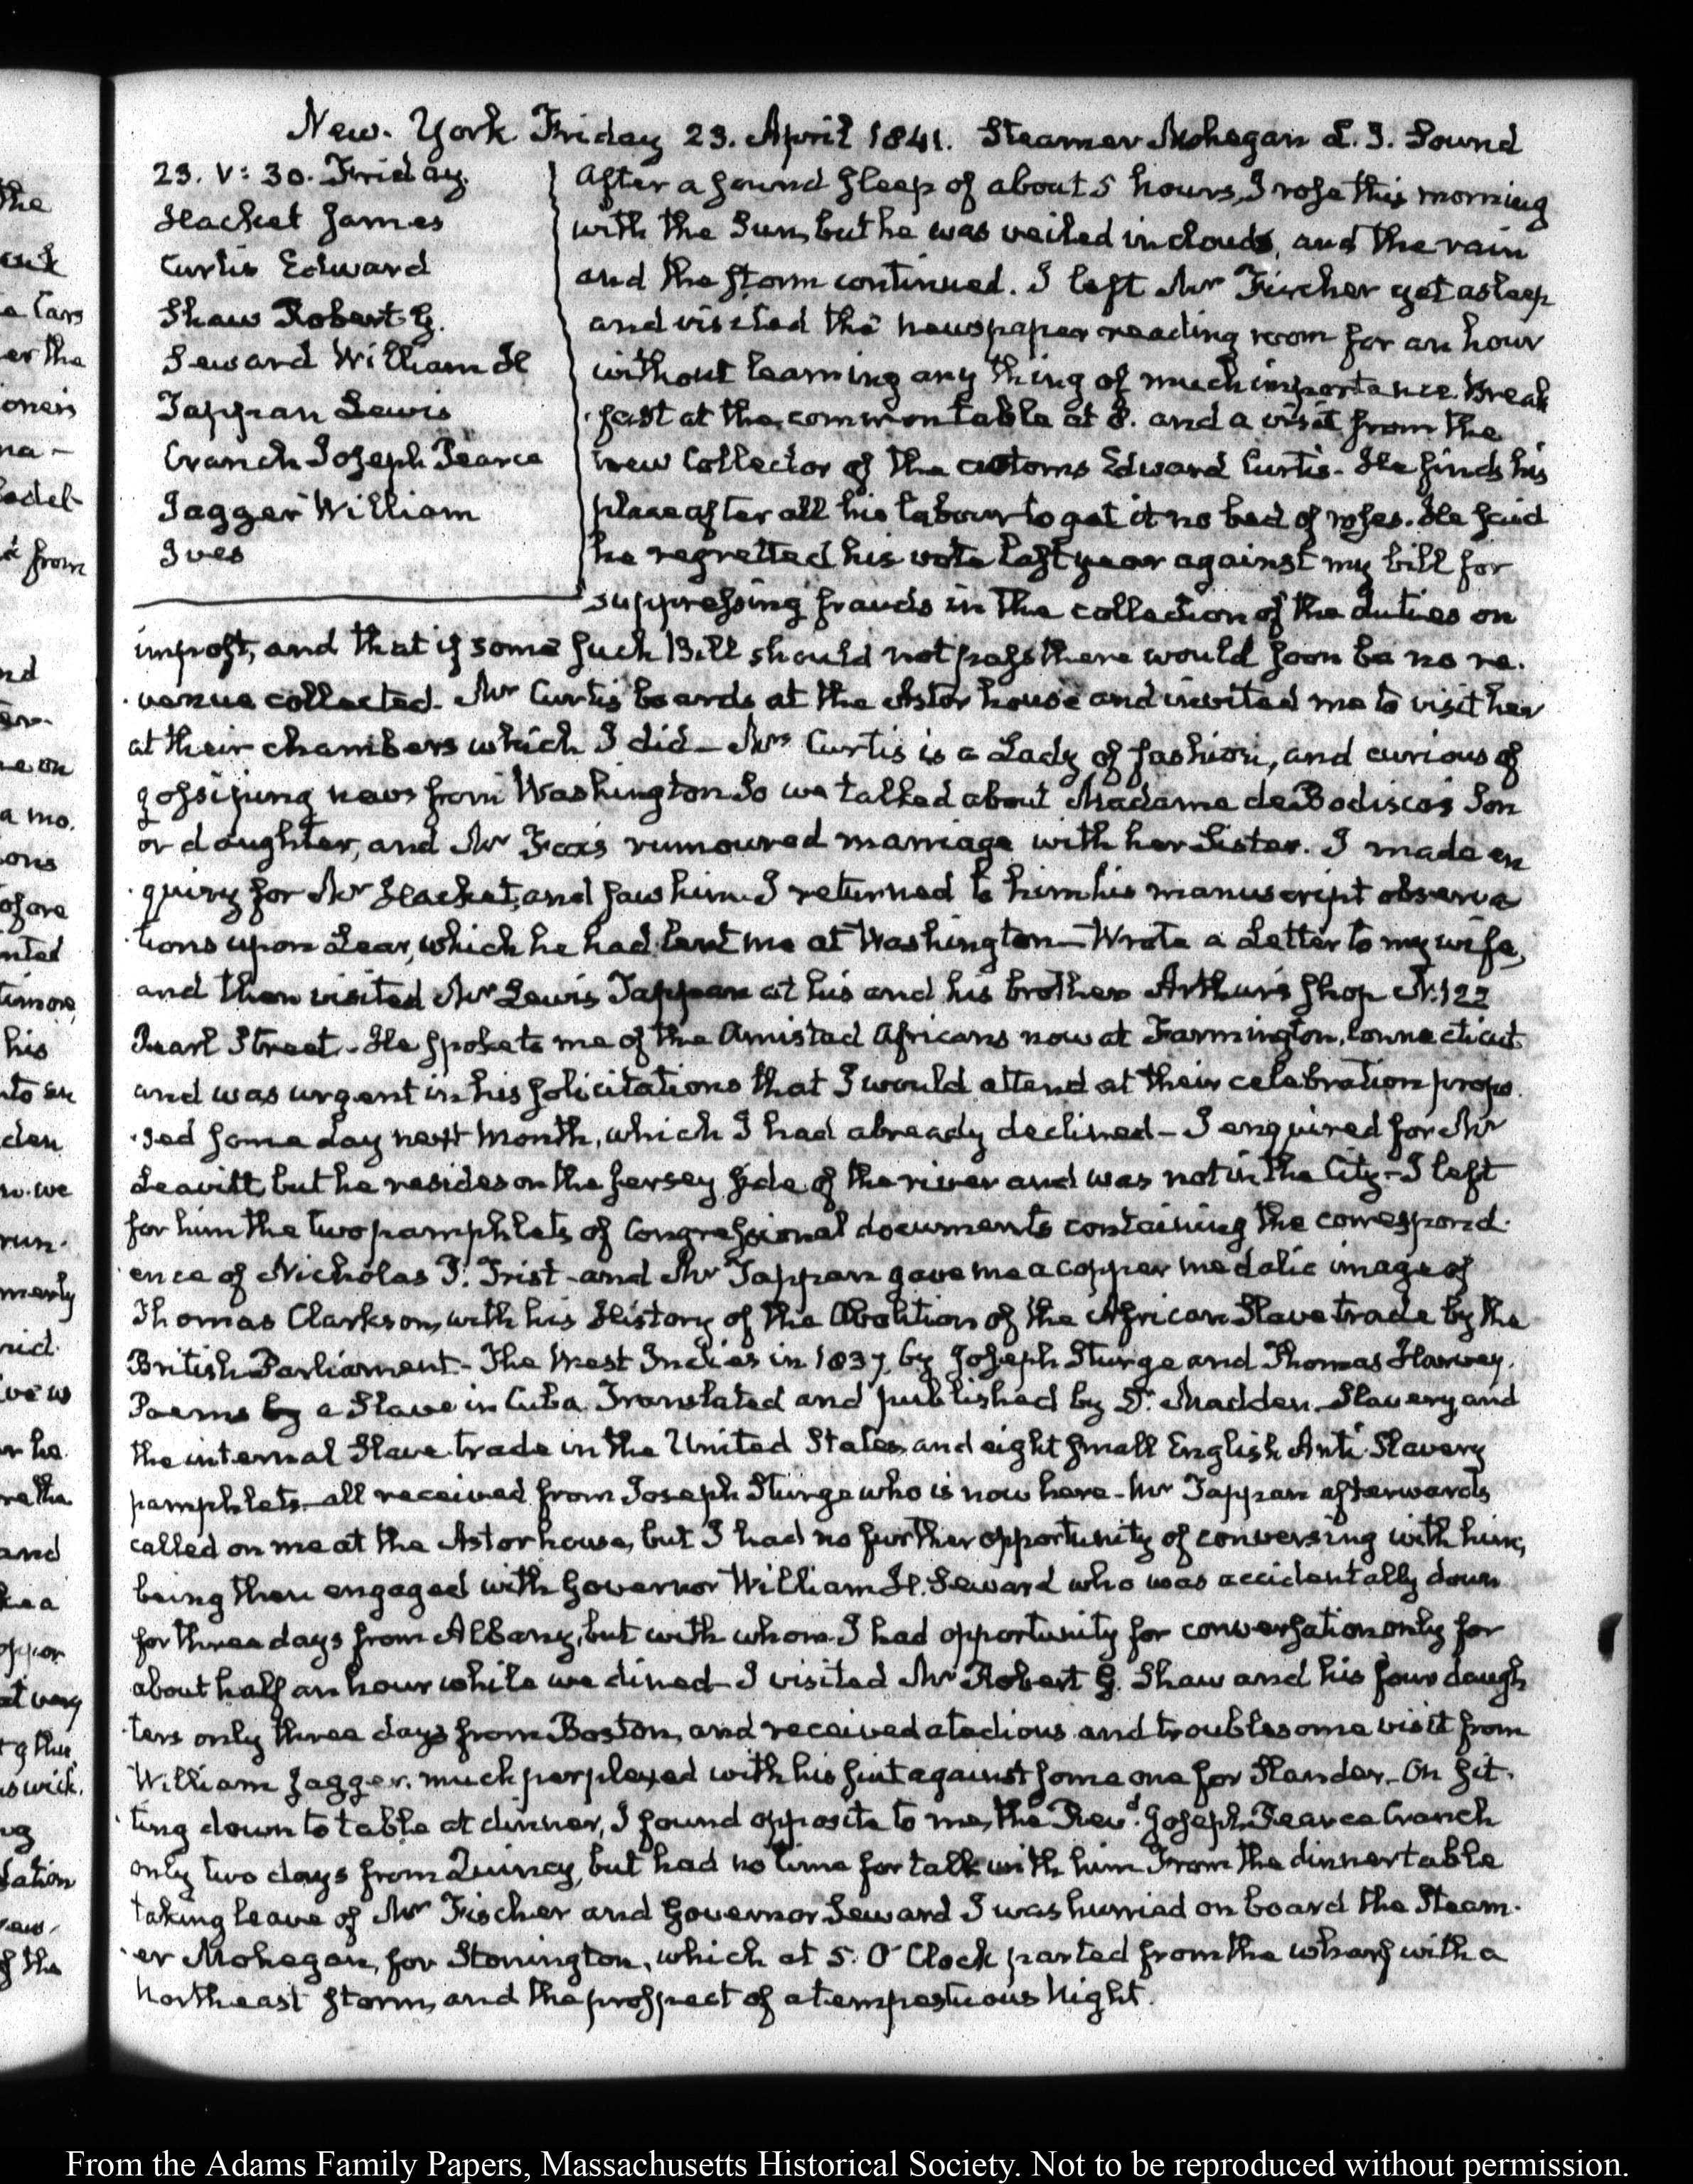 New-York Friday 23. April 1841. Steamer Mohegan L. I. Sound
23. V: 30. Friday.
Hacket James
Curtis Edward
Shaw Robert G.
Seward William H
Tappan Lewis
Cranch Joseph Pearce
Jagger William
Ives
After a sound sleep of about 5 hours, I rose this morning
with the Sun, but he was veiled in clouds, and the rain
and the storm continued. I left Mr Fischer yet asleep
and visited the newspaper reading room for an hour
without learning any thing of much importance. Break
fast at the common table at 8. and a visit from the
new Collector of the customs Edward Curtis. He finds his
place after all his labour to get it no bed of roses. He said
he regretted his vote last year against my bill for
suppressing frauds in the collection of the duties on
impost, and that if some such Bill should not pass there would soon be no re-
venue collected. Mr Curtis boards at the Astor house and invited me to visit her
at their chambers which I did - Mrs Curtis is a Lady of fashion, and curious of
gossiping news from Washington So we talked about Madame de Bodisco's Son
or daughter, and Mr Fox's rumoured marriage with her Sister. I made en
quiry for Mr Hacket, and saw him. I returned to him his manuscript observa
tions upon Lear, which he had lent me at Washington - Wrote a Letter to my wife,
and then visited Mr Lewis Tappan at his and his brother Arthur's shop N. 122
Pearl Street - He spoke to me of the Amistad Africans now at Farmington, Connecticut
and was urgent in his solicitations that I would attend at their celebration propo-
sed some day next Month, which I had already declined - I enquired for Mr
Leavitt but he resides on the Jersey side of the river and was not in the City - I left
for him the two pamphlets of Congressional documents containing the correspond-
ence of Nicholas P. Trist - and Mr Tappan gave me a copper medalic image of
Thomas Clarkson, with his History of the Abolition of the African Slave trade by the
British Parliament - The West Indies in 1837, by Joseph Sturge and Thomas Harvey.
Poems by a Slave in Cuba Translated and published by Dr. Madden - Slavery and
the internal Slave trade in the United States, and eight small English Anti-Slavery
pamphlets - all received from Joseph Sturge who is now here - Mr Tappan afterwards
called on me at the Astor house, but I had no further opportunity of conversing with him,
being then engaged with Governor William H. Seward who was accidentally down
for three days from Albany, but with whom I had opportunity for conversation only for
about half an hour while we dined - I visited Mr Robert G. Shaw and his four daugh
ters only three days from Boston, and received a tedious and troublesome visit from
William Jagger, much perplexed with his suit against some one for Slander - On sit-
ting down to table at dinner, I found opposite to me, the Revd. Joseph Pearce Cranch
only two days from Quincy, but had no time for talk with him From the dinner table
taking leave of Mr Fischer and Governor Seward I was hurried on board the Steam-
er Mohegan, for Stonington, which at 5. O'Clock parted from the wharf with a
Northeast storm, and the prospect of a tempestuous Night.
From the Adams Family Papers, Massachusetts Historical Society. Not to be reproduced without permission.